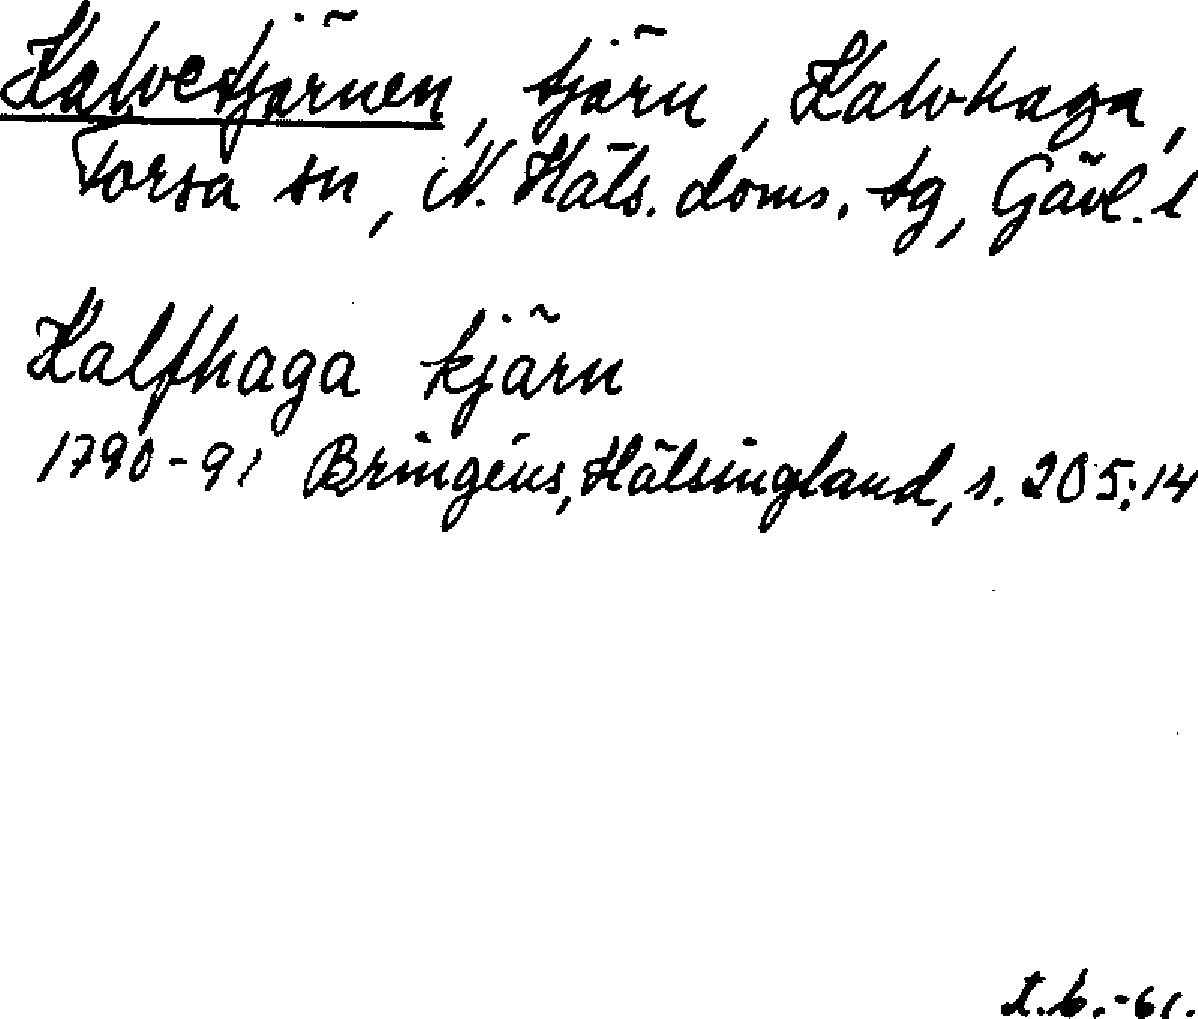 Kalvetjärnen, tjärn, Kalvhaga,
Torsa sn, N. Häls. doms. tg, Gävl. l
Kalfhaga kjärn
1790-91 Bringéus, Hälsingland, s. 205:14
-61.